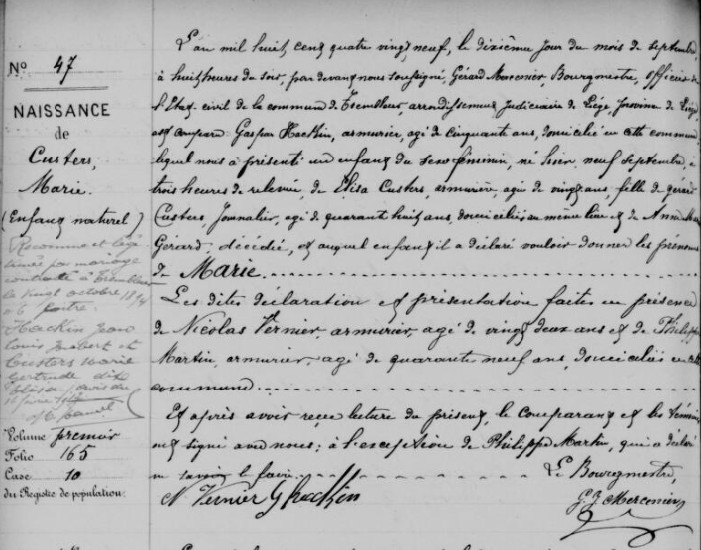 N° 47
NAISSANCE
de
Custers,
Marie.
(Enfant naturel)
Reconnue et légi
timée par mariage
contracté à Trembleur
le vingt octobre
Hackin Jean
Louis Hubert et
Custers Marie
Gertrude dite
Elisa
Volume premier
Folio 165
Case 10
du Registe de population:
L'an mil huit cent quatre vingt neuf, le dixième jour du mois de septembre,
à huit heures du soir, par devant nous soussigné, Gérard Mercenier, Bourgmestre, officier de
l'Etat civil de la commune de Trembleur, arrondissement judiciaire de Liége, province de Liége
est comparu Gaspar Hackin, armurier, agé de cinquante ans, domicilié en cette commune
lequel nous a présenté un enfant du sexe féminin, né hier, neuf septembre à
trois heures de relevée, de Elisa Custers, armurière, agée de vingt ans, fille de Gérard
Custers, Journalier, agé de quarante huit ans, domiciliés au même lieu et de Anne
Gérard, décédée, et auquel enfant il a déclaré vouloir donner les prénoms
de Marie
Les dites déclaration et présentation faites en présence
de Nicolas Vernier, armurier, agé de vingt deux ans et de Philippe
Martin, armurier, agé de quarante neuf ans, domiciliés en cette
commune
Et après avoir reçu lecture du présent, le comparant et les témoins
ont signé avec nous; à l'exception de Philippe Martin, qui a déclaré
ne savoir le faire.
Le Bourgmestre,
N Vernier G Hackin
G. J. Mercenier